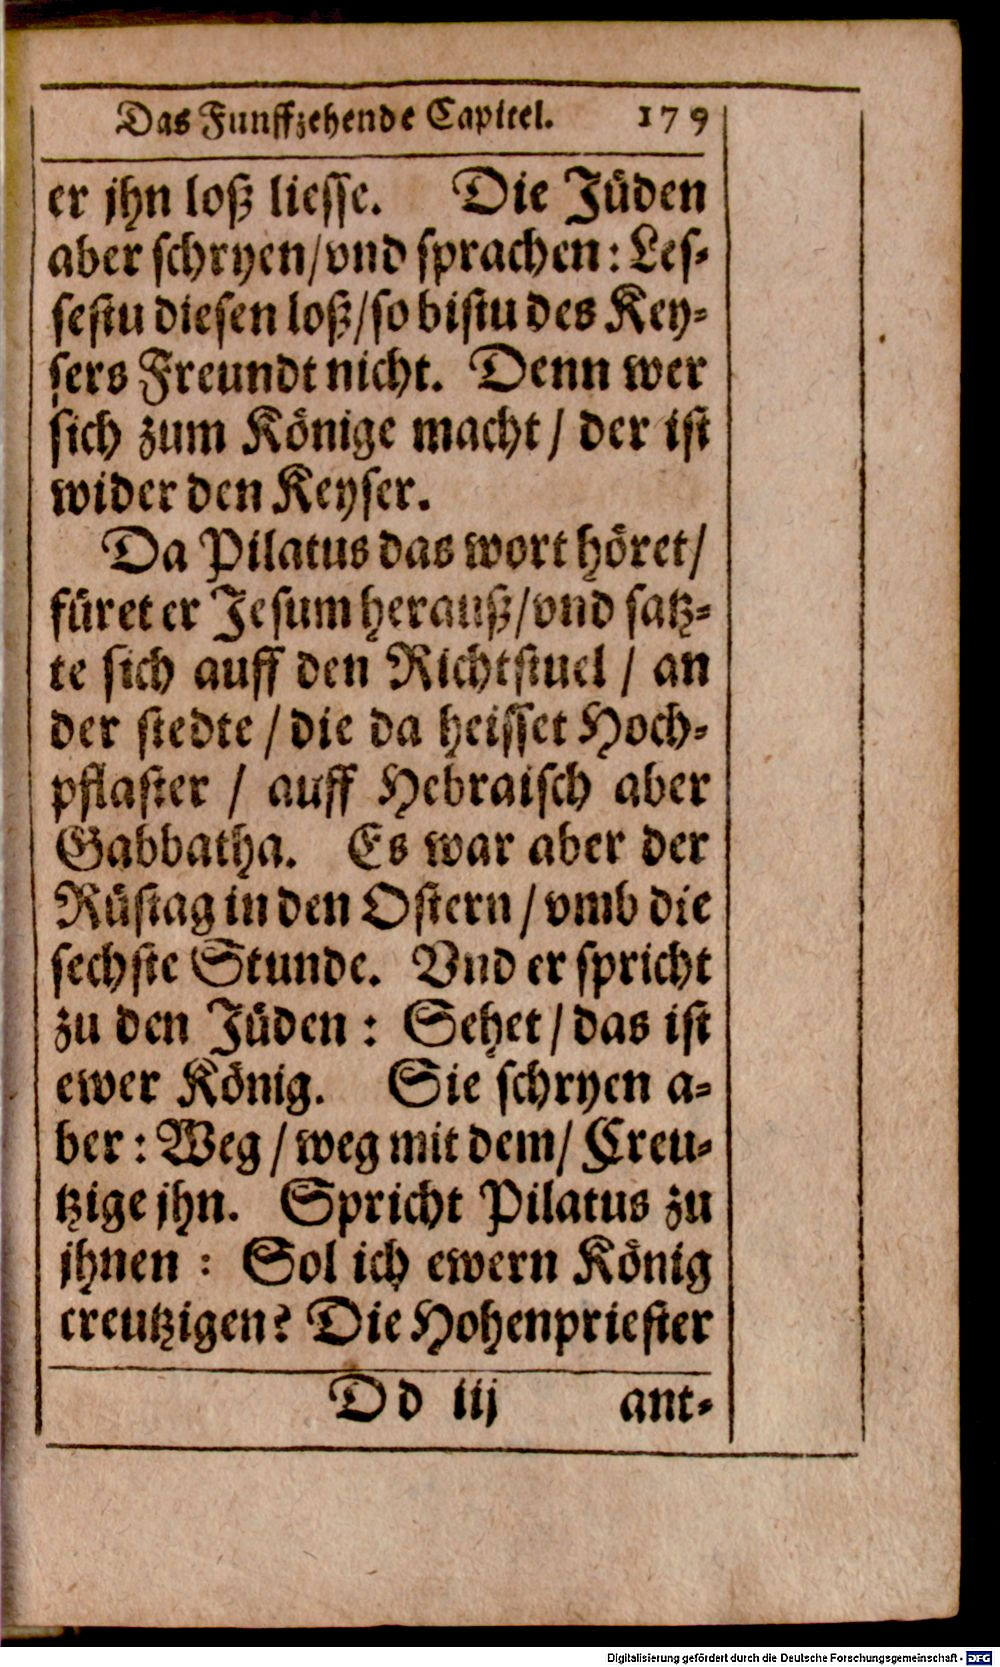 Das Funffzehende Capitel. 179
er jhn loß liesse. Die Jüden
aber schryen/vnd sprachen: Les-
sestu diesen loß/so bistu des Key-
sers Freundt nicht. Denn wer
sich zum Könige macht/ der ist
wider den Keyser.
Da Pilatus das wort höret/
füret er Jesum herauß/vnd satz-
te sich auff den Richtstuel / an
der stedte / die da heisset Hoch-
pflaster / auff Hebraisch aber
Gabbatha. Es war aber der
Rüstag in den Ostern / vmb die
sechste Stunde. Vnd er spricht
zu den Jüden : Sehet / das ist
ewer König. Sie schryen a-
ber : Weg / weg mit dem/ Creu-
tzige jhn. Spricht Pilatus zu
jhnen : Sol ich ewern König
creutzigen? Die Hohenpriester
Dd iij ant-
Digitalisierung gefördert durch die Deutsche Forschungsgemeinschaft - DFG